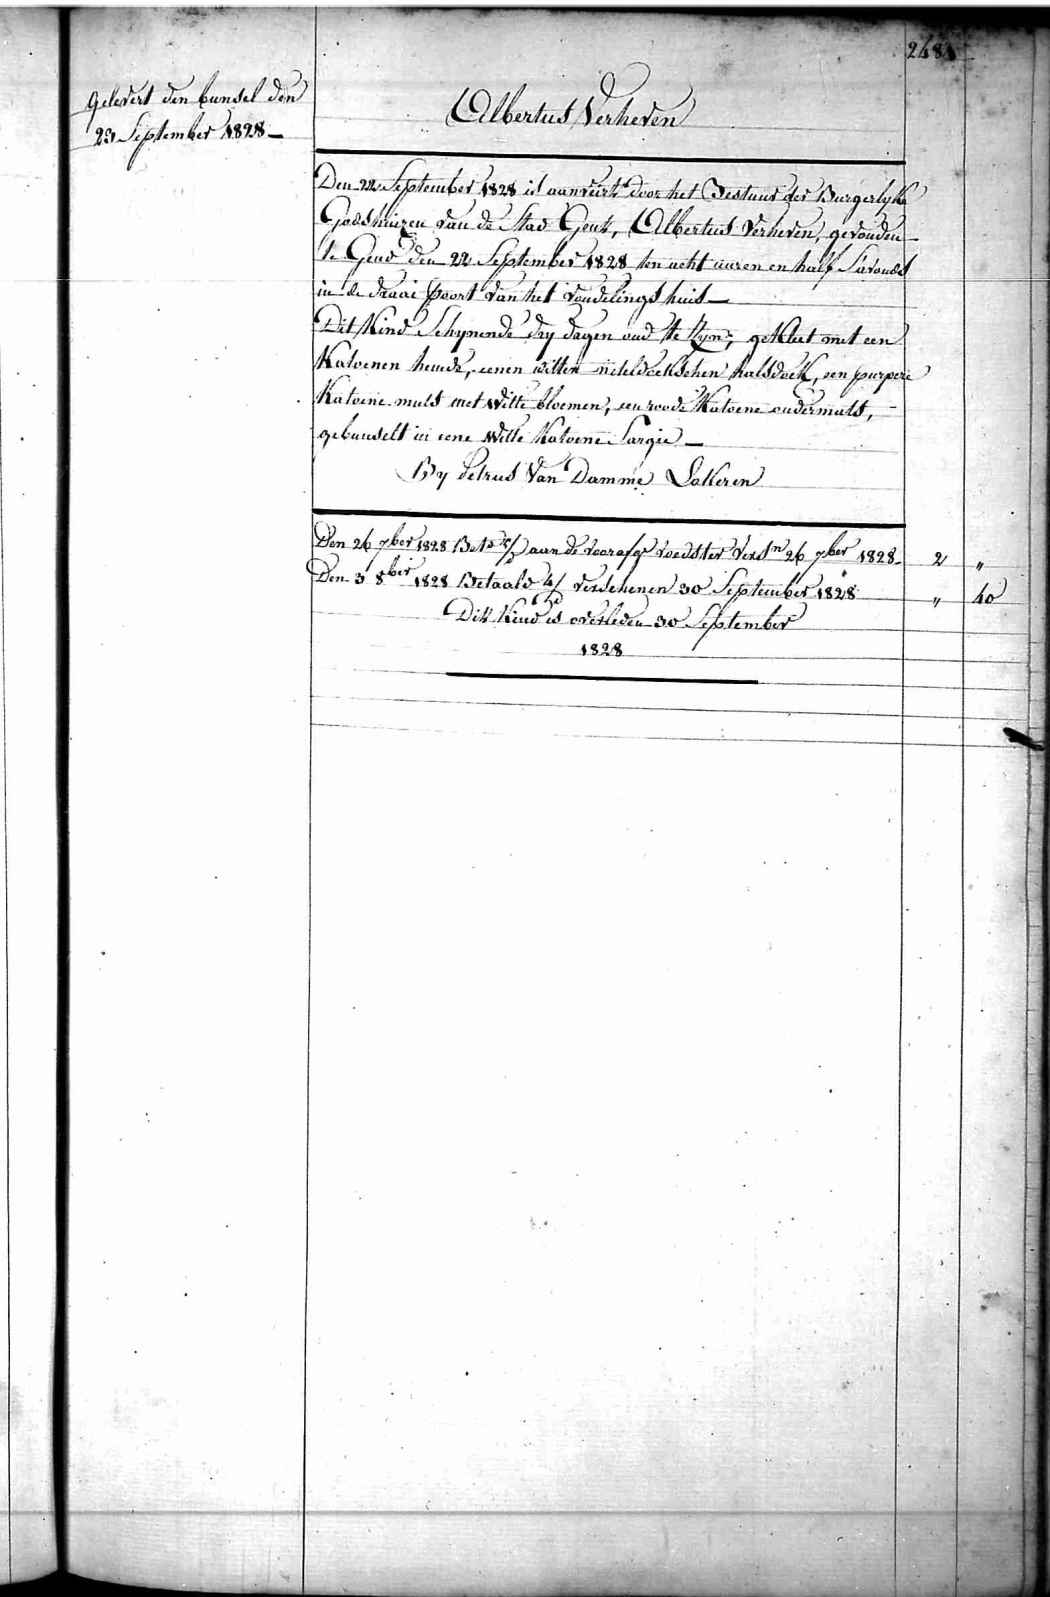 248
Gelevert den bunsel den
23 September 1828
Albertus Verheven
Den 22 September 1828 is aanveirt door het Bestuur der Burgerlyke
Godshuizen van de Stad Gent, Albertus Verheven, gevonden
te Gend den 22 September 1828 ten acht uuren en half s'avonds
in de draai poort van het vondelings huis
Dit Kind Schynende dry dagen oud te zyn, gekleet met een
Katoenen hemde, eenen witten halsdoek, een purpere
Katoene muts met Witte bloemen, een roode Katoene ondermuts,
gebunselt in eene Witte Katoene Sargie
By Petrus Van Damme Lokeren
Den 26 7ber 1828 aan de voedster 26 7ber 1828 2 "
Den 3 8ber 1828 Betaald verschenen 30 September 1828 " 40
Dit Kind is overleden 30 September
1828